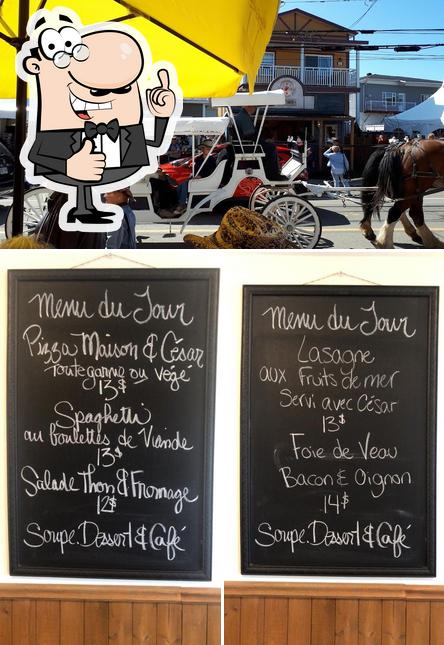 Menu du Jour
Pizza Maison & César
Toute garnie ou végé
13$
Spaghetti
au boulettes de Viande
13$
Salade Thon & Fromage
12$
Soupe. Dessert & Café
Menu du Jour
Lasagne
aux Fruits de mer
Servi avec César
13$
Foie de Veau
Bacon & Oignon
14$
Soupe. Dessert & Café